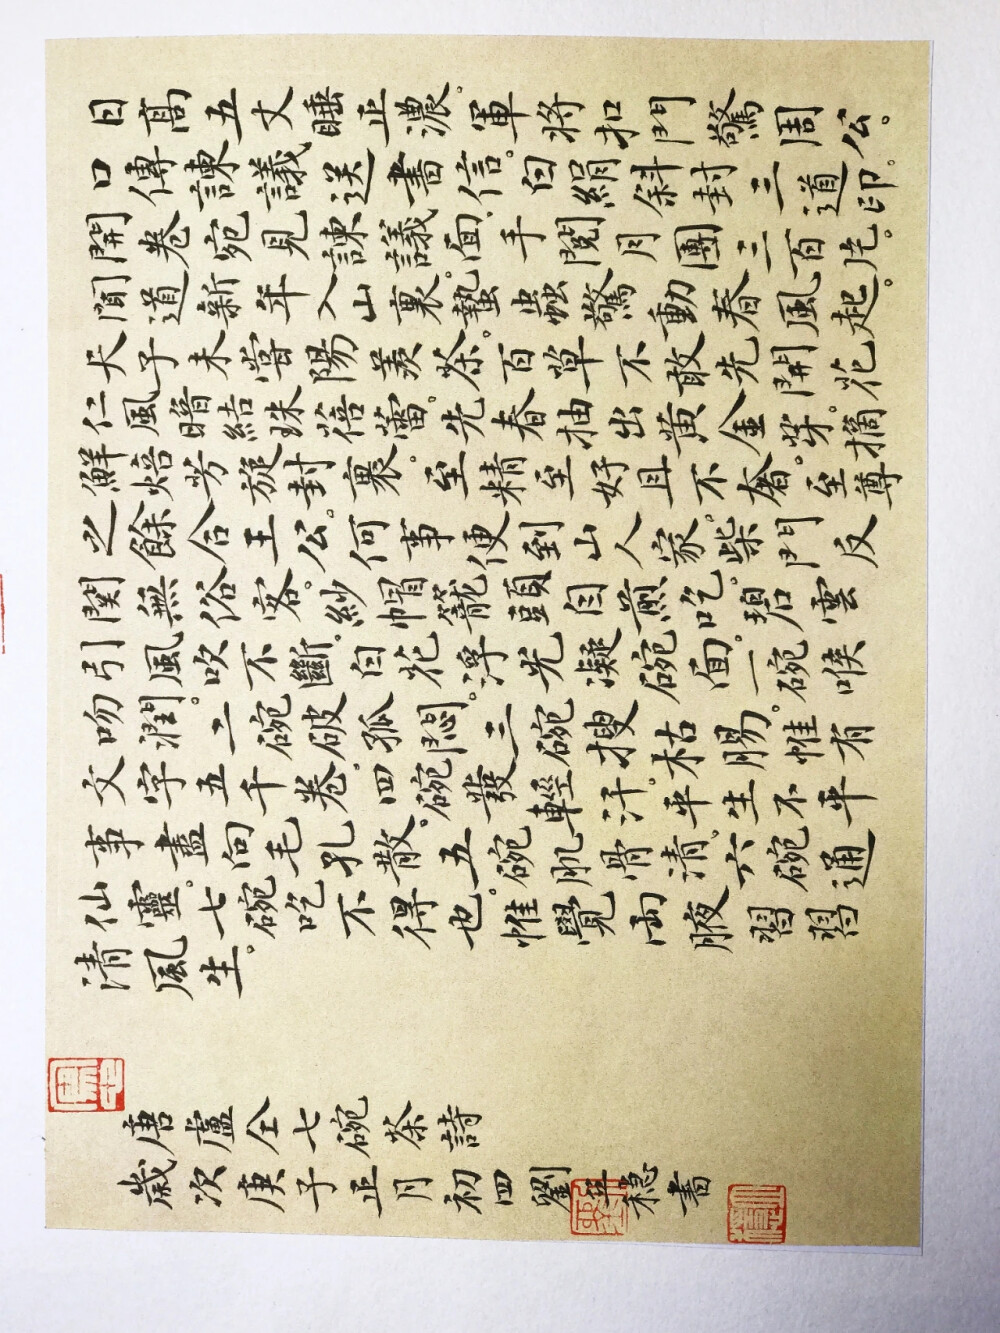 日高五丈睡正濃。軍將扣門驚周公。
口傳諫議送書信。白絹斜封三道印。
開卷宛見諫議面。手閱月團三百片。
聞道新年入山裏。蟄蟲驚動春風起。
天子未嘗陽羨茶。百草不敢先開花。
仁風暗結珠蓓蕾。先春抽出黃金芽。摘
鮮焙芳旋封裹。至精至好且不奢。至尊
之餘合王公。何事便到山人家。柴門反
關無俗客。紗帽籠頭自煎吃。碧雲
引風吹不斷。白花浮光凝碗面。一碗喉
吻潤。二碗破孤悶。三碗搜枯腸。惟有
文字五千卷。四碗發輕汗。平生不平
事盡向毛孔散。五碗肌骨清。六碗通
仙靈。七碗吃不得也。惟覺兩腋習習
清風生。
唐盧仝七碗茶詩
歲次庚子正月初四劉穩書